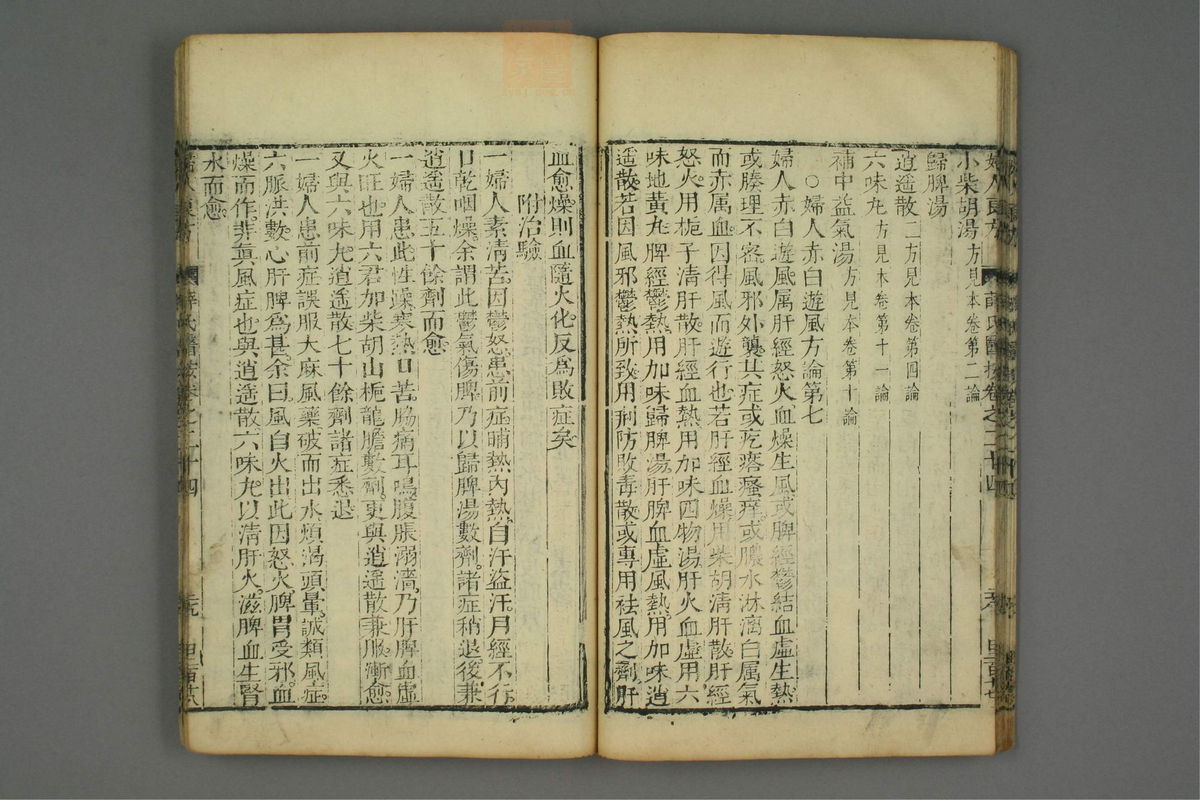 小柴胡湯方見本卷第二論
歸脾湯
逍遥散二方見本卷第四論
六味丸方見本卷第十一論
補中益氣湯方見本卷第十論
○婦人赤白遊風方論第七
婦人赤白遊風属肝經怒火血燥生風或脾經鬱結血虛生熱
或腠理不密風邪外襲其症或疙瘩瘙痒或膿水淋漓白属氣
而赤属血因得風而遊行也若肝經血燥用柴胡清肝散肝經
怒火用梔子清肝散肝經血熱用加味四物湯肝火血虛用六
味地黃丸脾經鬱熱用加味歸脾湯肝脾血虛風熱用加味逍
遥散若因風邪鬱熱所致用荆防敗毒散或專用祛風之劑肝
血愈燥則血隨火化反爲敗症矣
附治驗
一婦人素清苦因鬱怒患前症晡熱內熱自汗盗汗月經不行
口乾咽燥余謂此鬱氣傷脾乃以歸脾湯數劑諸症稍退後兼
逍遥散五十餘劑而愈
一婦人患此性躁寒熱口苦脇痛耳鳴腹脹溺濇乃肝脾血虛
火旺也用六君加柴胡山梔龍膽數劑更與逍遥散兼服漸愈
又與六味丸逍遥散七十餘劑諸症悉退
一婦人患前症誤服大麻風藥破而出水煩渴頭暈誠類風症
六脈洪數心肝脾爲甚余曰風自火出此因怒火脾胃受邪血
燥而作非眞風症也與逍遥散六味丸以清肝火滋脾血生腎
水而愈